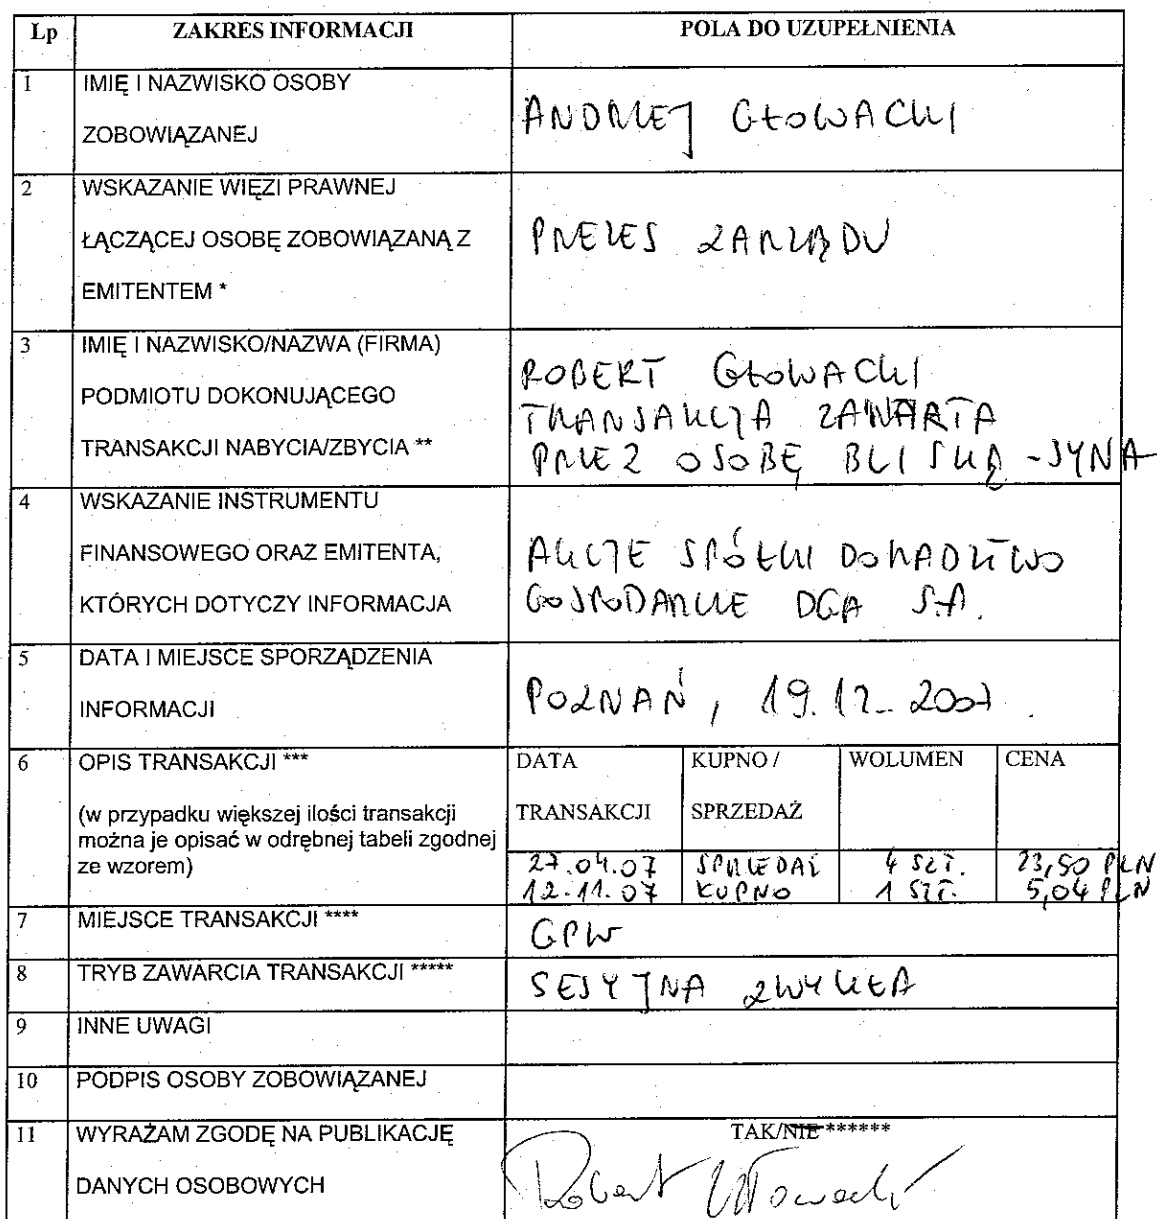 Lp ZAKRES INFORMACJI POLA DO UZUPEŁNIENIA
1 IMIĘ I NAZWISKO OSOBY
ZOBOWIĄZANEJ
ANDRZEJ GŁOWACKI
2 WSKAZANIE WIĘZI PRAWNEJ
ŁĄCZĄCEJ OSOBĘ ZOBOWIĄZANĄ Z
EMITENTEM *
PREZES ZARZĄDU
3 IMIĘ I NAZWISKO/NAZWA (FIRMA)
PODMIOTU DOKONUJĄCEGO
TRANSAKCJI NABYCIA/ZBYCIA **
ROBERT GŁOWACKI
TRANSAKCJA ZAWARTA
PRZEZ OSOBĘ BLISKĄ - SYNA
4 WSKAZANIE INSTRUMENTU
FINANSOWEGO ORAZ EMITENTA,
KTÓRYCH DOTYCZY INFORMACJA
AKCJE SPÓŁKI DORADZTWO
GOSPODARCZE DGA S.A.
5 DATA I MIEJSCE SPORZĄDZENIA
INFORMACJI
POZNAŃ, 19.12.2007
6 OPIS TRANSAKCJI ***
(w przypadku większej ilości transakcji
można je opisać w odrębnej tabeli zgodnej
ze wzorem)
DATA KUPNO / WOLUMEN CENA
TRANSAKCJI SPRZEDAŻ
27.04.07 SPRZEDAŻ 4 SZT. 23,50 PLN
12.11.07 KUPNO 1 SZT. 5,04 PLN
7 MIEJSCE TRANSAKCJI ****
GPW
8 TRYB ZAWARCIA TRANSAKCJI *****
SESYJNA ZWYKŁA
9 INNE UWAGI
10 PODPIS OSOBY ZOBOWIĄZANEJ
11 WYRAŻAM ZGODĘ NA PUBLIKACJĘ
DANYCH OSOBOWYCH
TAK/NIE ******
Robert Głowacki